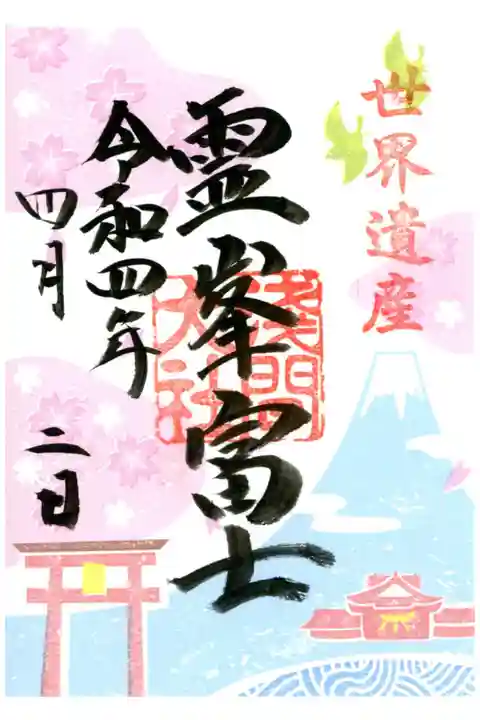 世界遺産
霊峯富士
浅間
大社
令和四年
四月
二日